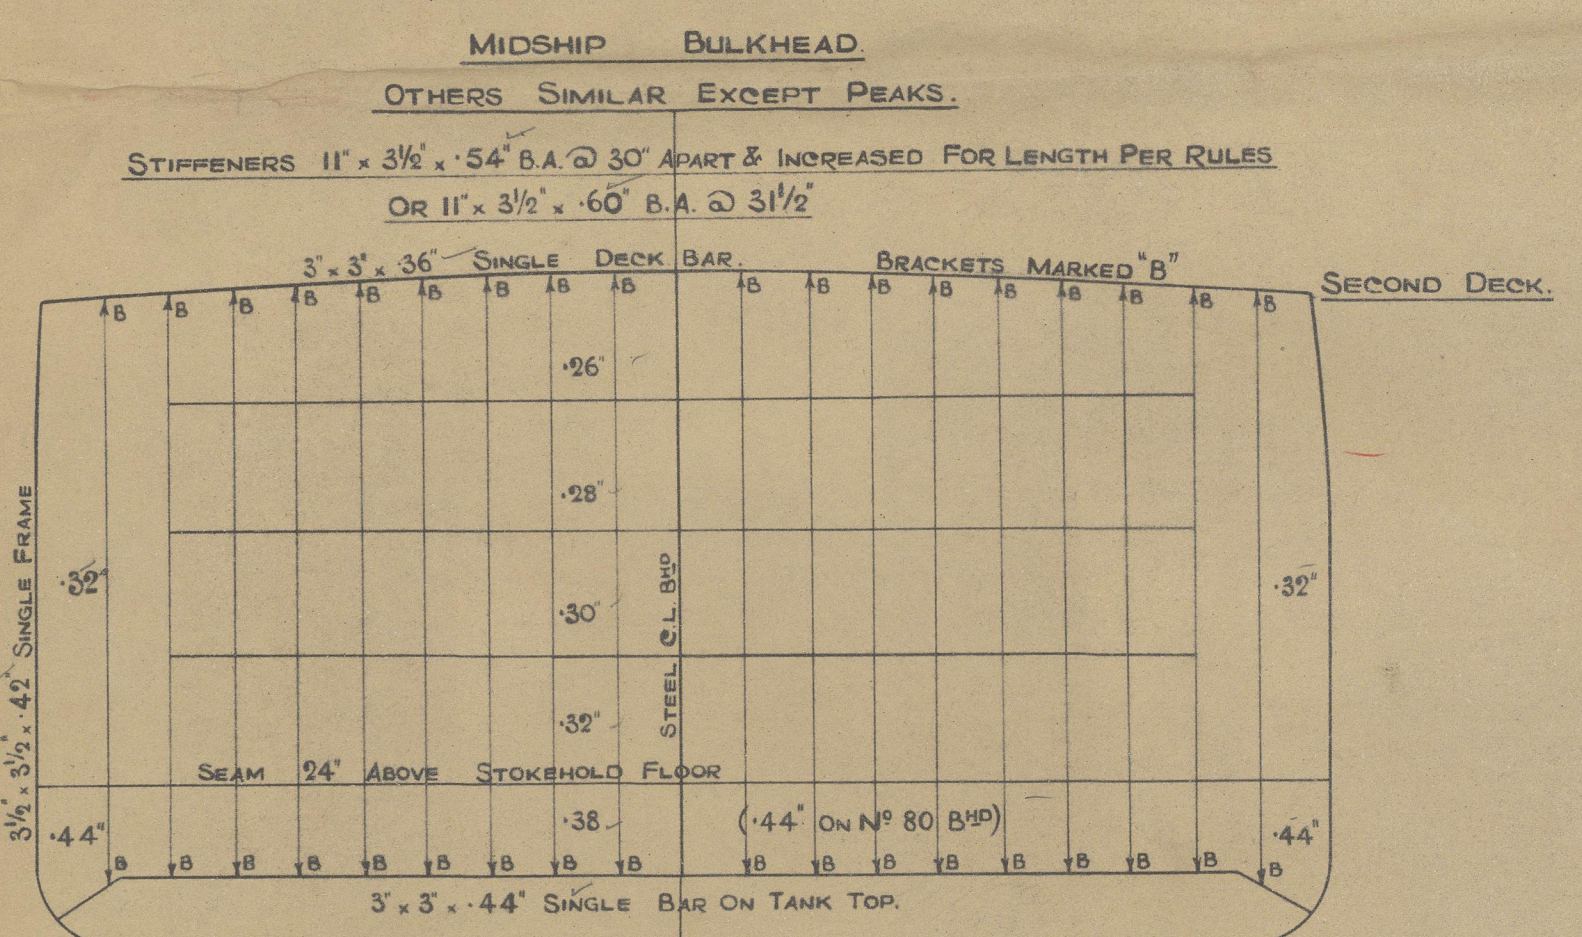 MIDSHIP BULKHEAD.
OTHERS SIMILAR EXCEPT PEAKS.
STIFFENERS 11" x 3½" x .54" B.A. @ 30" APART & INCREASED FOR LENGTH PER RULES
OR 11" x 3½" x .60" B.A. @ 31½"
3" x 3" x .36" SINGLE DECK BAR. BRACKETS MARKED "B"
SECOND DECK.
B B B B B B B B B B B B B B B B B B
.26"
.28"
3½" x 3½" x .42" SINGLE FRAME
.32"
.32"
.30"
STEEL C.L. BHD
.32"
SEAM 24" ABOVE STOKEHOLD FLOOR
.44" .38 (.44" ON Nº 80 BHD) .44"
B B B B B B B B B B B B B B B B B B
3" x 3" x .44" SINGLE BAR ON TANK TOP.